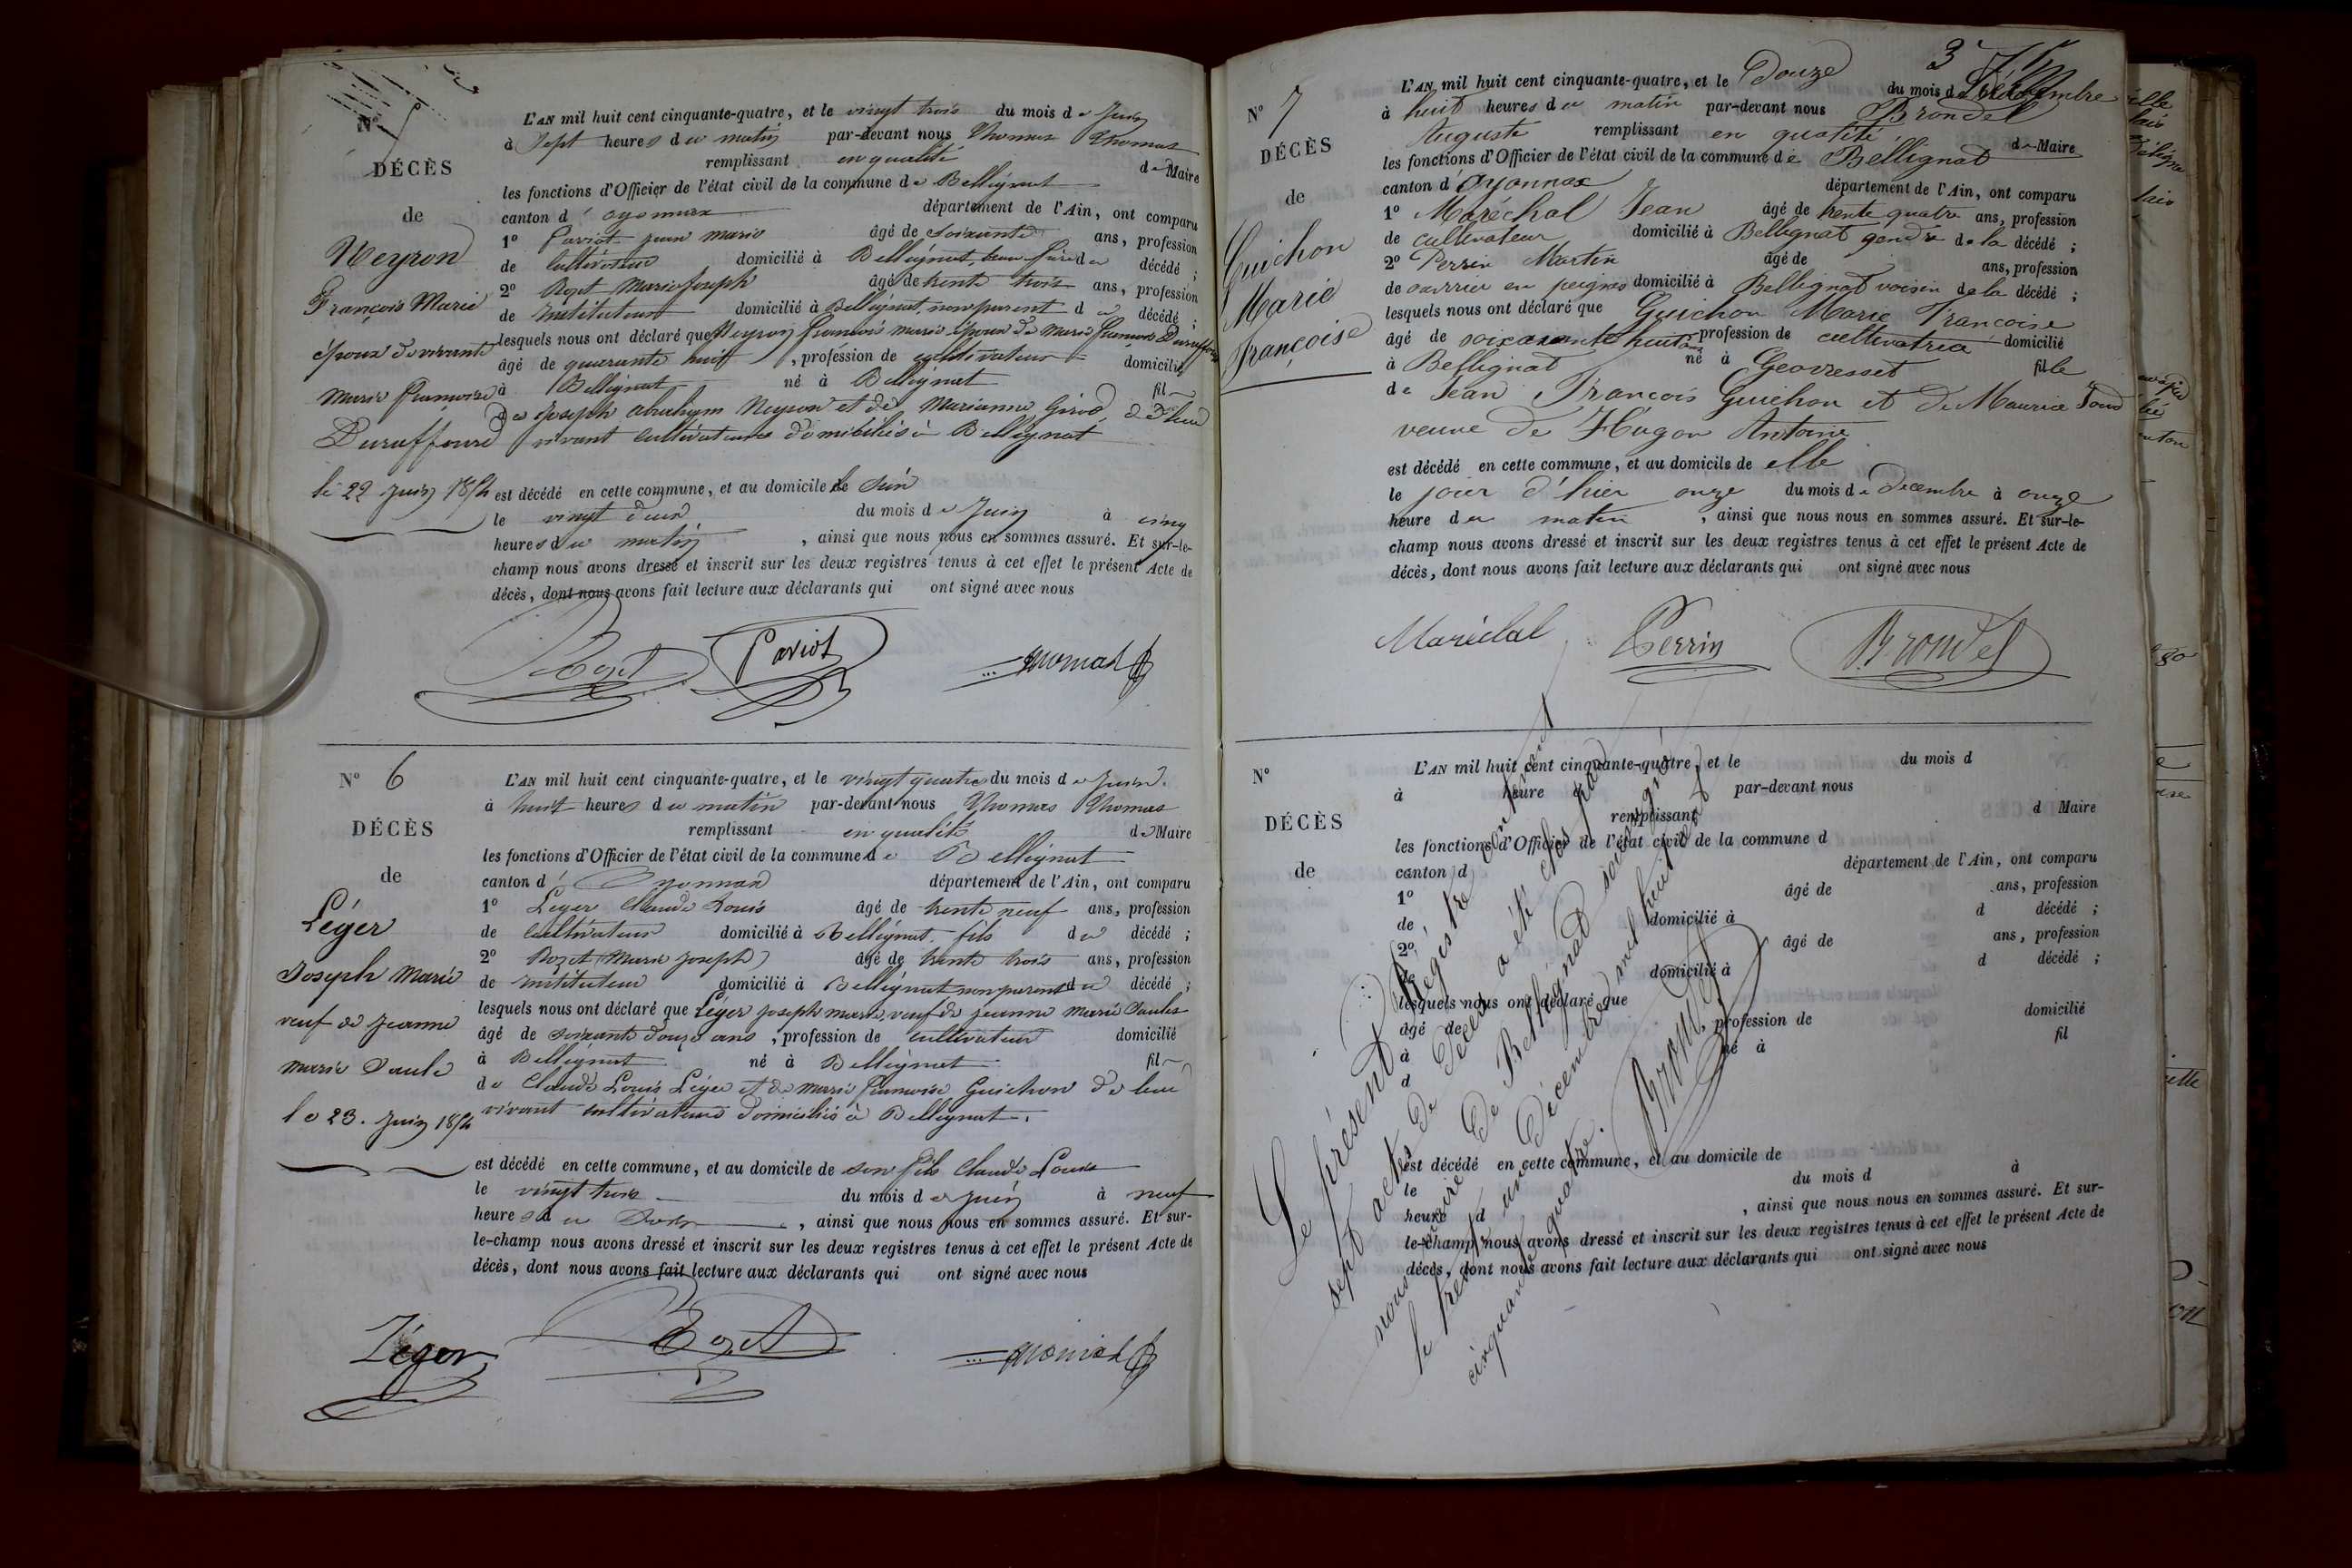 N°
DÉCÈS
de
Neyron
François Marie
époux de vivante
Marie françoise
Duraffourd
le 22 Juin 1854
L'AN mil huit cent cinquante-quatre, et le vingt trois du mois de Juin
à Sept heures du matin par-devant nous Thomas Thomas
remplissant en qualité de Maire
les fonctions d'Officier de l'état civil de la commune de Bellignat
canton d'oyonnax département de l'Ain, ont comparu
1° Paviot jean marie âgé de soixante ans, profession
de Cultivateur domicilié à Bellignat, beau frère du décédé ;
2° Rozet Marie Joseph âgé de trente trois ans, profession
de instituteur domicilié à Bellignat, non parent du décédé ;
lesquels nous ont déclaré que Neyron françois marie époux de marie françoise Duraffourd
âgé de quarante huit, profession de cultivateur domicilié
à Bellignat né à Bellignat fil
de Joseph abraham Neyron et de Marianne Girod, de leur
vivant cultivateurs domiciliés à Bellignat
est décédé en cette commune, et au domicile de sien
le vingt deux du mois de Juin à cinq
heures du matin, ainsi que nous nous en sommes assuré. Et sur-le-
champ nous avons dressé et inscrit sur les deux registres tenus à cet effet le présent Acte de
décès, dont nous avons fait lecture aux déclarants qui ont signé avec nous
Rozet Paviot Thomas
N° 6
DÉCÈS
de
Léger
Joseph Marie
veuf de jeanne
marie
le 23. Juin 1854
L'AN mil huit cent cinquante-quatre, et le vingt quatre du mois de Juin.
à huit heures du matin par-devant nous Thomas Thomas
remplissant en qualité de Maire
les fonctions d'Officier de l'état civil de la commune de Bellignat
canton d'Oyonnax département de l'Ain, ont comparu
1° Leger Claude Louis âgé de trente neuf ans, profession
de Cultivateur domicilié à Bellignat, fils du décédé ;
2° Rozet (Marie Joseph) âgé de trente trois ans, profession
de instituteur domicilié à Bellignat non parent du décédé ;
lesquels nous ont déclaré que Léger joseph marie, veuf de jeanne marie
âgé de soixante douze ans, profession de cultivateur domicilié
à Bellignat né à Bellignat fil
de Claude Louis Léger et de marie françoise Guichon de leur
vivant cultivateurs domiciliés à Bellignat.
est décédé en cette commune, et au domicile de son fils Claude Louis
le vingt trois du mois de juin à neuf
heures du Soir, ainsi que nous nous en sommes assuré. Et sur-
le-champ nous avons dressé et inscrit sur les deux registres tenus à cet effet le présent Acte de
décès, dont nous avons fait lecture aux déclarants qui ont signé avec nous
Léger Rozet Thomas
N° 7
DÉCÈS
de
Guichon
Marie
Françoise
L'AN mil huit cent cinquante-quatre, et le Douze du mois de Décembre
à huit heures du matin par-devant nous Brondel
Auguste remplissant en qualité de Maire
les fonctions d'Officier de l'état civil de la commune de Bellignat
canton d'Oyonnax département de l'Ain, ont comparu
1° Maréchal Jean âgé de trente quatre ans, profession
de cultivateur domicilié à Bellignat gendre de la décédé ;
2° Perrin Martin âgé de ans, profession
de ouvrier en peignes domicilié à Bellignat voisin de la décédé ;
lesquels nous ont déclaré que Guichon Marie Françoise
âgé de soixante huit ans profession de cultivatrice domicilié
à Bellignat né à Geovresset fille
de Jean François Guichon et de Maurice
veuve de Hugon Antoine
est décédé en cette commune, et au domicile de elle
le jour d'hier onze du mois de decembre à onze
heure du matin, ainsi que nous nous en sommes assuré. Et sur-le-
champ nous avons dressé et inscrit sur les deux registres tenus à cet effet le présent Acte de
décès, dont nous avons fait lecture aux déclarants qui ont signé avec nous
Maréchal Perrin Brondel
N°
DÉCÈS
de
L'AN mil huit cent cinquante-quatre, et le du mois d
à heure d par-devant nous
remplissant d Maire
les fonctions d'Officier de l'état civil de la commune d
canton d département de l'Ain, ont comparu
1° âgé de ans, profession
de domicilié à d décédé ;
2° âgé de ans, profession
de domicilié à d décédé ;
lesquels nous ont déclaré que
âgé de profession de domicilié
à né à fil
d
est décédé en cette commune, et au domicile de
le du mois d à
heure d, ainsi que nous nous en sommes assuré. Et sur-
le-champ nous avons dressé et inscrit sur les deux registres tenus à cet effet le présent Acte de
décès, dont nous avons fait lecture aux déclarants qui ont signé avec nous
Le présent Régistre contenant
sept actes de Décès a été clos par
nous maire de Bellignat soussigné
le trente un Décembre mil huit cent
cinquante quatre.
Brondel